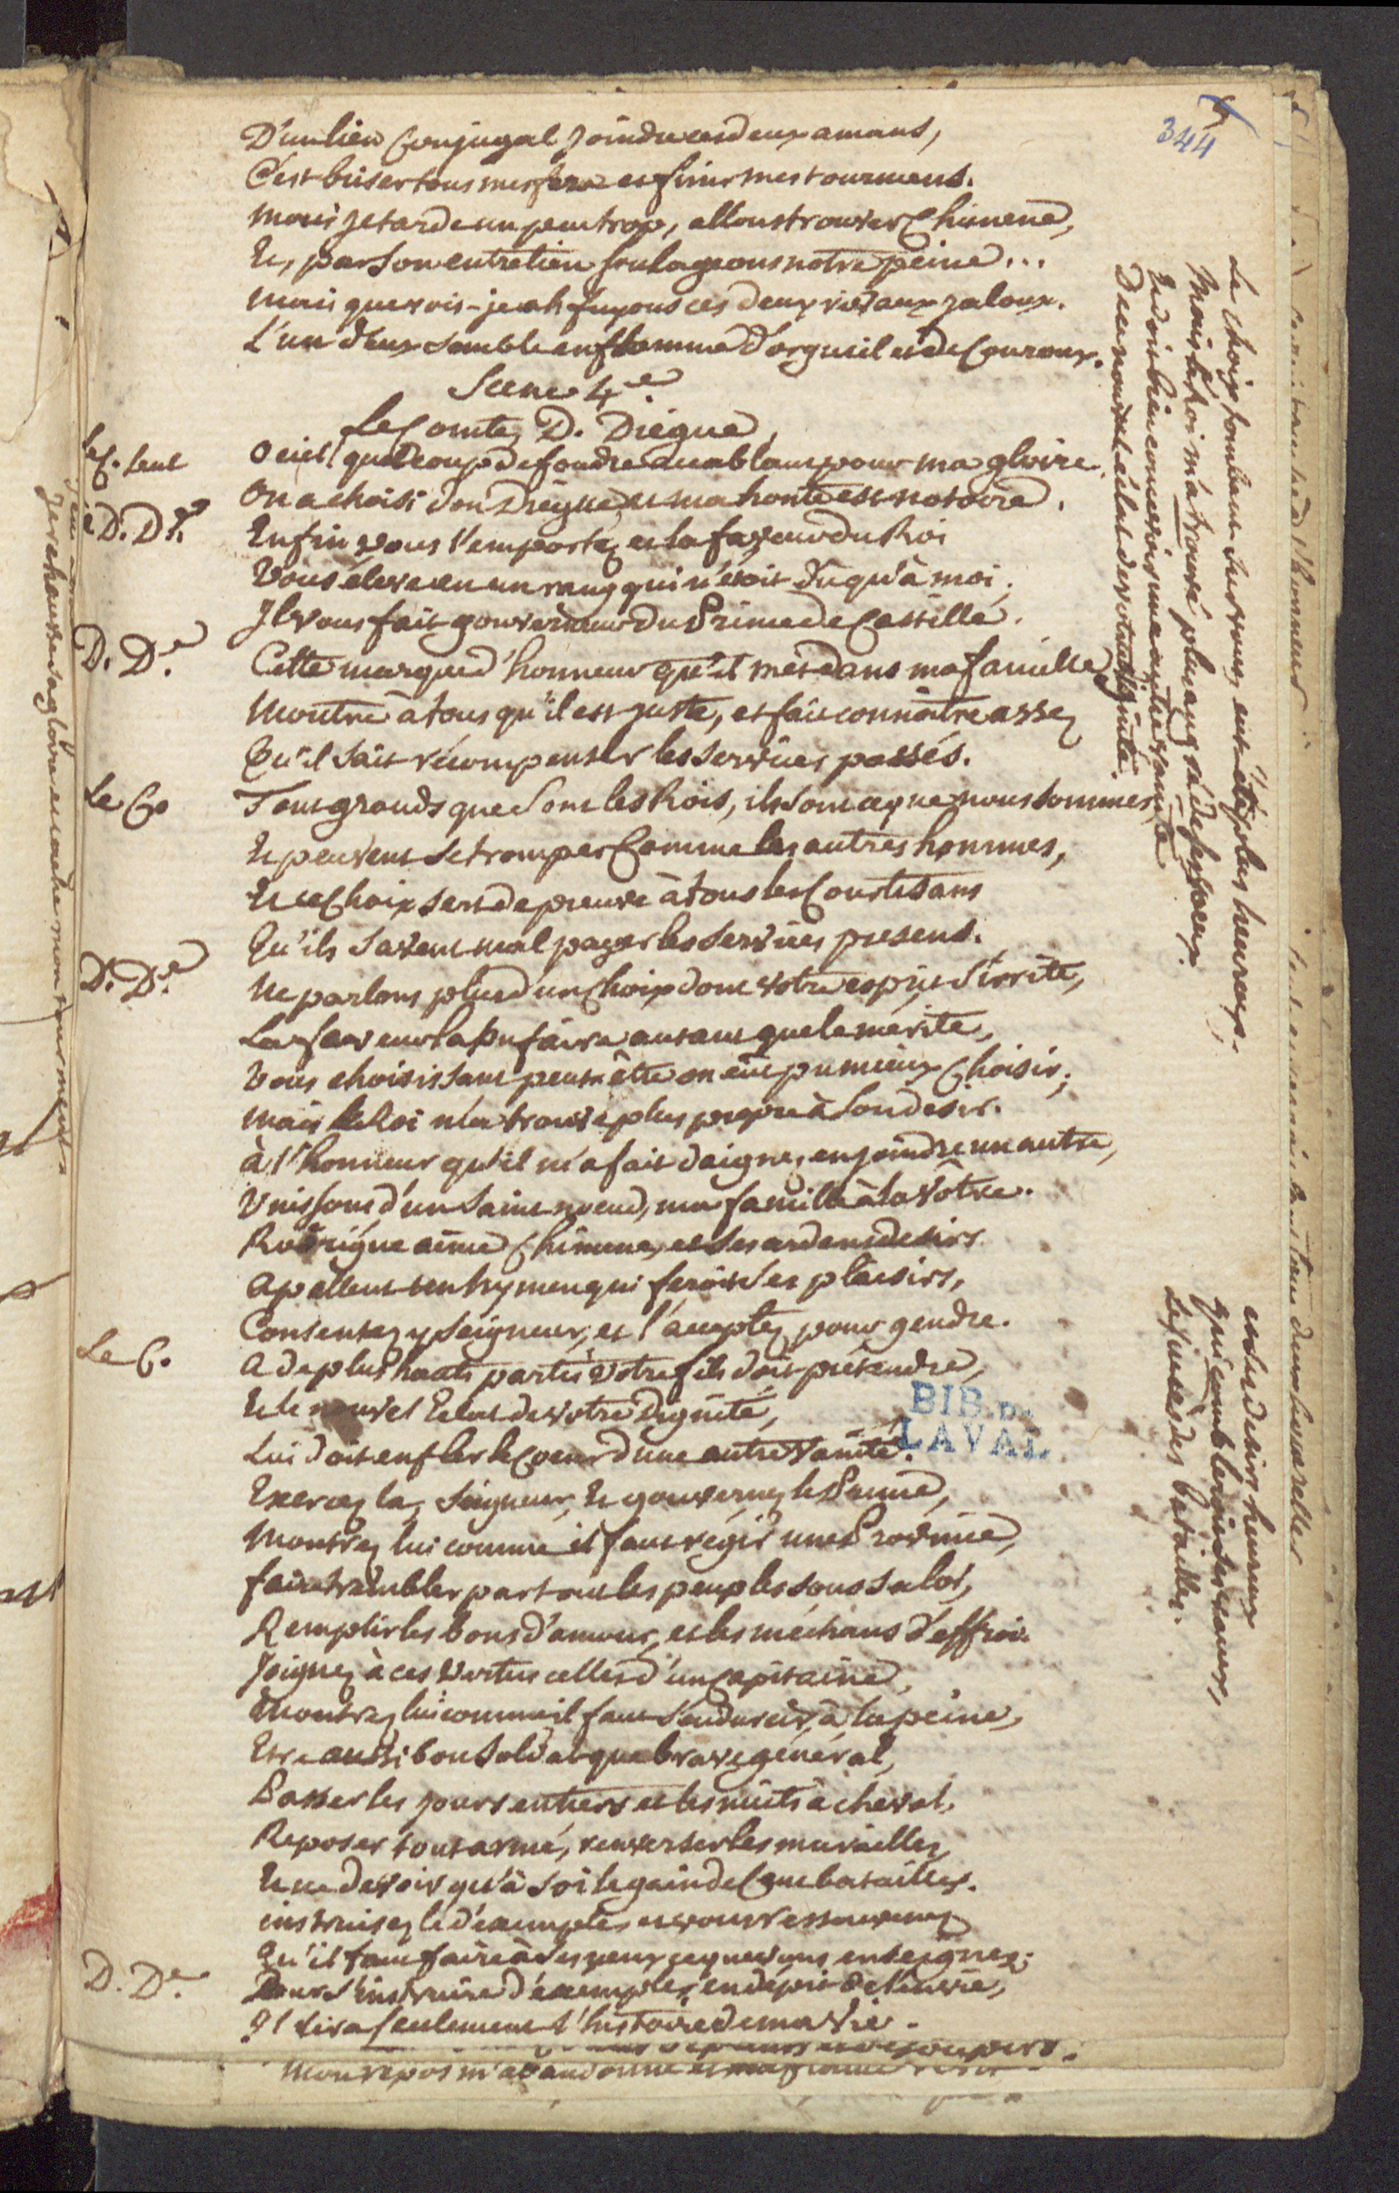 344
D'un lien Conjugal joindre ces deux amans,
C'est briser tous mes fers et finir mes tourmens.
Mais je tarde un peu trop, allons trouver Chimene,
Et, par son entretien soulageons notre peine...
Mais que vois-je ah fuyons ces deux rivaux jaloux.
L'un d'eux semble enflammé d'orgueil et de Couroux.
Scene 4e.
Le Comte, D. Diégue,
Le C. seul O ciel! quel coup de foudre accablant pour ma gloire
On a choisi don Diégue, et ma honte est notoire.
à D. De. Enfin vous l'emportez et la faveur du Roi
Vous éleve en un rang qui n'étoit dû qu'à moi.
Il vous fait gouverneur du Prince de Castille.
D. De. Cette marque d'honneur qu'il met dans ma famille
Montre à tous qu'il est juste, et fait connoître assez
Qu'il sait récompenser les services passés.
Le Co Tout grands que sont les Rois, ils sont ce que nous sommes
Et peuvent se tromper Comme les autres hommes,
Et ce Choix sert de preuve à tous les Courtisans
Qu'ils savent mal payer les services presens.
D. De. Ne parlons plus d'un Choix dont votre esprit s'irrite,
La faveur l'a pu faire autant que le mérite,
Vous choisissant peut être on eut pu mieux Choisir;
Mais le Roi m'a trouvé plus propre à son desir.
à l'honneur qu'il m'a fait daignez en joindre un autre,
Unissons d'un saint noeud, ma famille à la vôtre.
Rodrigue aime Chimene, et ses ardens desirs
Apellent un hymen qui feroit ses plaisirs,
Consentez y Seigneur, et l'acceptez pour gendre.
Le C. A de plus hauts partis votre fils doit prétendre,
Et le nouvel Eclat de votre dignité,
Lui doit enfler le Coeur d'une autre vanité.
Exercez la, Seigneur, Et gouvernez le Prince,
Montrez lui comme il faut régir une Province,
faire trembler par tout les peuples sous sa loi,
Remplir les bons d'amour, et les méchans d'effroi.
Joignez à ces vertus celles d'un Capitaine,
Montrez lui comme il faut s'endurcir à la peine,
Etre aussi bon soldat que brave général,
Passer les jours entiers et les nuits à cheval,
Reposer tout armé, renverser les murailles,
Et ne devoir qu'à soi le gain de Cent batailles.
instruisez le d'exemples et vous ressouvenez
Qu'il faut faire à ses yeux ce que vous enseignez.
D. De. Pour s'instruire d'exemples, en dépit de l'envie,
Il lira seulement l'histoire de ma vie.
Mon repos m'abandonne
Le choix tombant sur vous, eut été plus heureux.
Mais le Roi m'a trouvé plus
De ce nouvel éclat de votre dignité.
Les jeunes des batailles.
BIB. DE
LAVAL